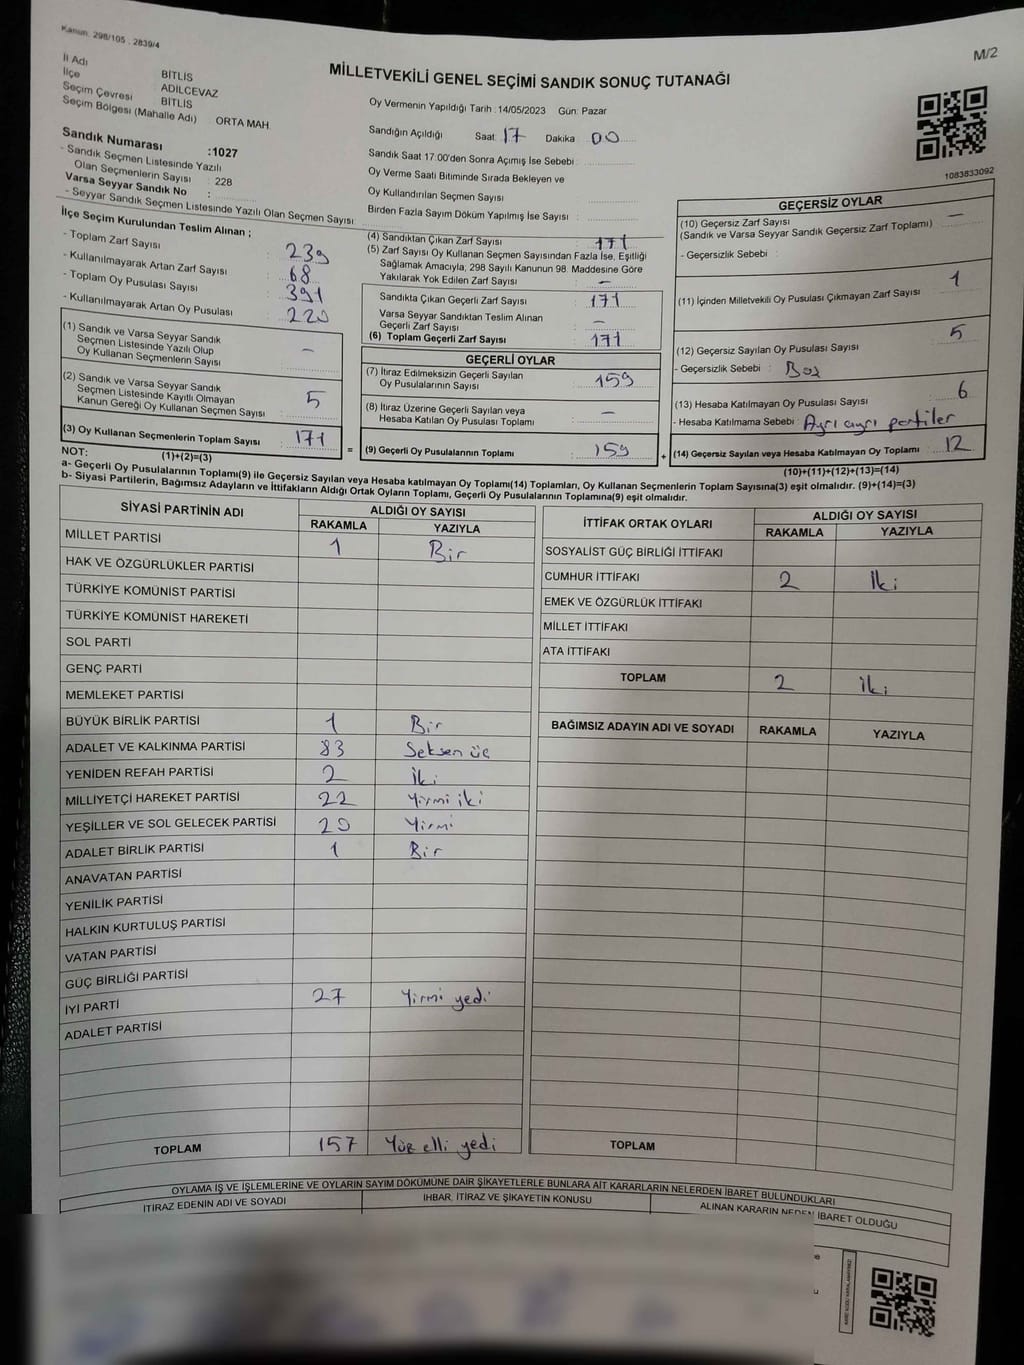 Kanun. 298/105 . 2839/4
M/2
MİLLETVEKİLİ GENEL SEÇİMİ SANDIK SONUÇ TUTANAĞI
İl Adı BİTLİS
İlçe ADİLCEVAZ
Seçim Çevresi BİTLİS
Seçim Bölgesi (Mahalle Adı) ORTA MAH.
Sandık Numarası :1027
- Sandık Seçmen Listesinde Yazılı
Olan Seçmenlerin Sayısı : 228
Varsa Seyyar Sandık No :
- Seyyar Sandık Seçmen Listesinde Yazılı Olan Seçmen Sayısı
Oy Vermenin Yapıldığı Tarih : 14/05/2023 Gün: Pazar
Sandığın Açıldığı Saat: 17 Dakika 00
Sandık Saat 17:00'den Sonra Açımış İse Sebebi :
Oy Verme Saati Bitiminde Sırada Bekleyen ve
Oy Kullandırılan Seçmen Sayısı :
Birden Fazla Sayım Döküm Yapılmış İse Sayısı :
1083833092
İlçe Seçim Kurulundan Teslim Alınan ;
- Toplam Zarf Sayısı : 239
- Kullanılmayarak Artan Zarf Sayısı : 68
- Toplam Oy Pusulası Sayısı : 391
- Kullanılmayarak Artan Oy Pusulası : 220
(1) Sandık ve Varsa Seyyar Sandık
Seçmen Listesinde Yazılı Olup
Oy Kullanan Seçmenlerin Sayısı : –
(2) Sandık ve Varsa Seyyar Sandık
Seçmen Listesinde Kayıtlı Olmayan
Kanun Gereği Oy Kullanan Seçmen Sayısı : 5
(3) Oy Kullanan Seçmenlerin Toplam Sayısı : 171
(1)+(2)=(3)
(4) Sandıktan Çıkan Zarf Sayısı : 171
(5) Zarf Sayısı Oy Kullanan Seçmen Sayısından Fazla İse, Eşitliği
Sağlamak Amacıyla; 298 Sayılı Kanunun 98. Maddesine Göre
Yakılarak Yok Edilen Zarf Sayısı : –
Sandıkta Çıkan Geçerli Zarf Sayısı : 171
Varsa Seyyar Sandıktan Teslim Alınan
Geçerli Zarf Sayısı : –
(6) Toplam Geçerli Zarf Sayısı : 171
GEÇERLİ OYLAR
(7) İtiraz Edilmeksizin Geçerli Sayılan
Oy Pusulalarının Sayısı : 159
(8) İtiraz Üzerine Geçerli Sayılan veya
Hesaba Katılan Oy Pusulası Toplamı : –
= (9) Geçerli Oy Pusulalarının Toplamı : 159 +
GEÇERSİZ OYLAR
(10) Geçersiz Zarf Sayısı : –
(Sandık ve Varsa Seyyar Sandık Geçersiz Zarf Toplamı)
- Geçersizlik Sebebi :
(11) İçinden Milletvekili Oy Pusulası Çıkmayan Zarf Sayısı : 1
(12) Geçersiz Sayılan Oy Pusulası Sayısı : 5
- Geçersizlik Sebebi : Boş
(13) Hesaba Katılmayan Oy Pusulası Sayısı : 6
- Hesaba Katılmama Sebebi : Ayrı ayrı partiler
(14) Geçersiz Sayılan veya Hesaba Katılmayan Oy Toplamı : 12
(10)+(11)+(12)+(13)=(14)
NOT:
a- Geçerli Oy Pusulalarının Toplamı(9) ile Geçersiz Sayılan veya Hesaba katılmayan Oy Toplamı(14) Toplamları, Oy Kullanan Seçmenlerin Toplam Sayısına(3) eşit olmalıdır. (9)+(14)=(3)
b- Siyasi Partilerin, Bağımsız Adayların ve İttifakların Aldığı Ortak Oyların Toplamı, Geçerli Oy Pusulalarının Toplamına(9) eşit olmalıdır.
SİYASİ PARTİNİN ADI ALDIĞI OY SAYISI
RAKAMLA YAZIYLA
MİLLET PARTİSİ 1 Bir
HAK VE ÖZGÜRLÜKLER PARTİSİ
TÜRKİYE KOMÜNİST PARTİSİ
TÜRKİYE KOMÜNİST HAREKETİ
SOL PARTİ
GENÇ PARTİ
MEMLEKET PARTİSİ
BÜYÜK BİRLİK PARTİSİ 1 Bir
ADALET VE KALKINMA PARTİSİ 83 Seksen üç
YENİDEN REFAH PARTİSİ 2 İki
MİLLİYETÇİ HAREKET PARTİSİ 22 Yirmi iki
YEŞİLLER VE SOL GELECEK PARTİSİ 20 Yirmi
ADALET BİRLİK PARTİSİ 1 Bir
ANAVATAN PARTİSİ
YENİLİK PARTİSİ
HALKIN KURTULUŞ PARTİSİ
VATAN PARTİSİ
GÜÇ BİRLİĞİ PARTİSİ
İYİ PARTİ 27 Yirmi yedi
ADALET PARTİSİ
TOPLAM 157 Yüz elli yedi
İTTİFAK ORTAK OYLARI ALDIĞI OY SAYISI
RAKAMLA YAZIYLA
SOSYALİST GÜÇ BİRLİĞİ İTTİFAKI
CUMHUR İTTİFAKI 2 İki
EMEK VE ÖZGÜRLÜK İTTİFAKI
MİLLET İTTİFAKI
ATA İTTİFAKI
TOPLAM 2 İki
BAĞIMSIZ ADAYIN ADI VE SOYADI RAKAMLA YAZIYLA
TOPLAM
OYLAMA İŞ VE İŞLEMLERİNE VE OYLARIN SAYIM DÖKÜMÜNE DAİR ŞİKAYETLERLE BUNLARA AİT KARARLARIN NELERDEN İBARET BULUNDUKLARI
İTİRAZ EDENİN ADI VE SOYADI İHBAR, İTİRAZ VE ŞİKAYETİN KONUSU ALINAN KARARIN NEDEN İBARET OLDUĞU